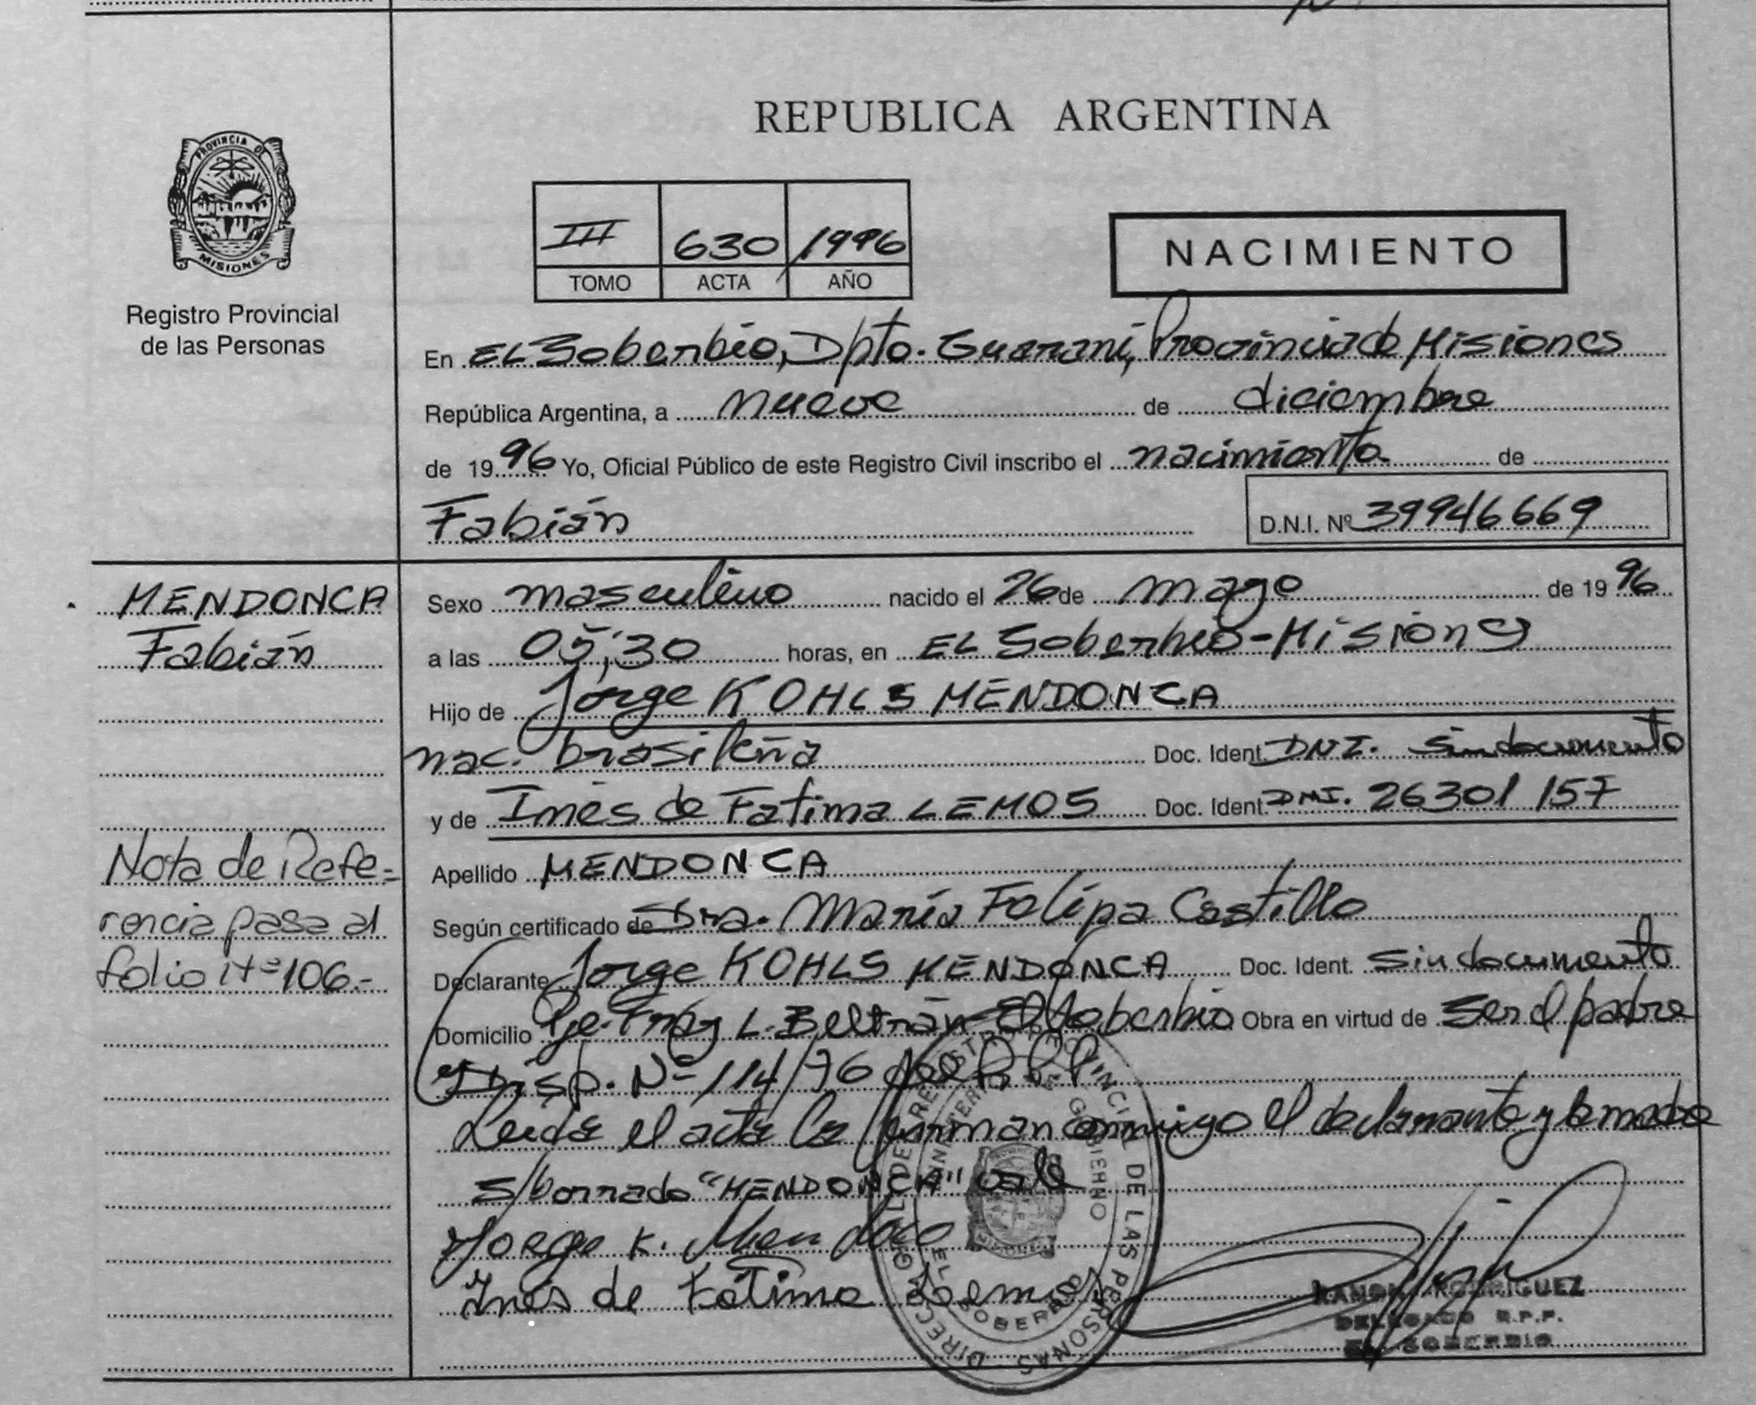 REPUBLICA ARGENTINA
PROVINCIA DE
MISIONES
Registro Provincial
de las Personas
III 630 1996
TOMO ACTA AÑO
NACIMIENTO
En EL Soberbio, Dpto. Guaraní, Provincia de Misiones
República Argentina, a nueve de diciembre
de 1996 Yo, Oficial Público de este Registro Civil inscribo el nacimiento de
Fabián
D.N.I. Nº 39946669
MENDONCA
Fabián
Sexo masculino nacido el 26 de mayo de 1996
a las 05,30 horas, en EL Soberbio-Misiones
Hijo de Jorge KOHLS MENDONCA
nac. brasileña Doc. Ident. DNI. sin documento
y de Inés de Fatima LEMOS Doc. Ident. DNI. 26301157
Nota de Refe=
rencia pasa al
folio Nº 106.-
Apellido MENDONCA
Según certificado de Dra. María Felipa Castillo
Declarante Jorge KOHLS MENDONCA Doc. Ident. sin documento
Domicilio Pje. Fray L. Beltrán-El Soberbio Obra en virtud de ser el padre
Disp. Nº 114/76 del R.P.P.
Leída el acta la firman conmigo el declarante y la madre
S/borrado "MENDONCA" vale
Jorge K. Mendoca
Inés de Fátima Lemos
DIRECC. GRAL. DE REGISTRO PROVINCIAL DE LAS PERSONAS
GOBIERNO
EL SOBERBIO
RAMON RODRIGUEZ
DELEGADO R.P.P.
EL SOBERBIO